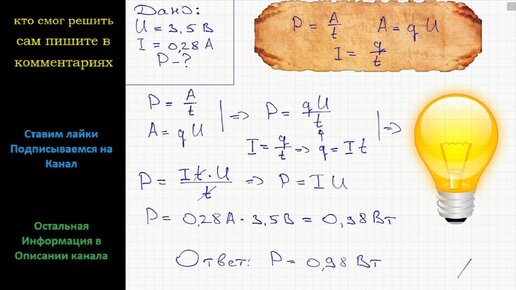 кто смог решить
сам пишите в
комментариях
Ставим лайки
Подписываемся на
Канал
Остальная
Информация в
Описании канала
Дано:
U = 3,5 В
I = 0,28 А
P - ?
P = A/t A = qU
I = q/t
P = A/t
A = qU
| => P = qU/t
I = q/t => q = It
| =>
P = It·U/t => P = IU
P = 0,28А · 3,5В = 0,98Вт
Ответ: P = 0,98 Вт